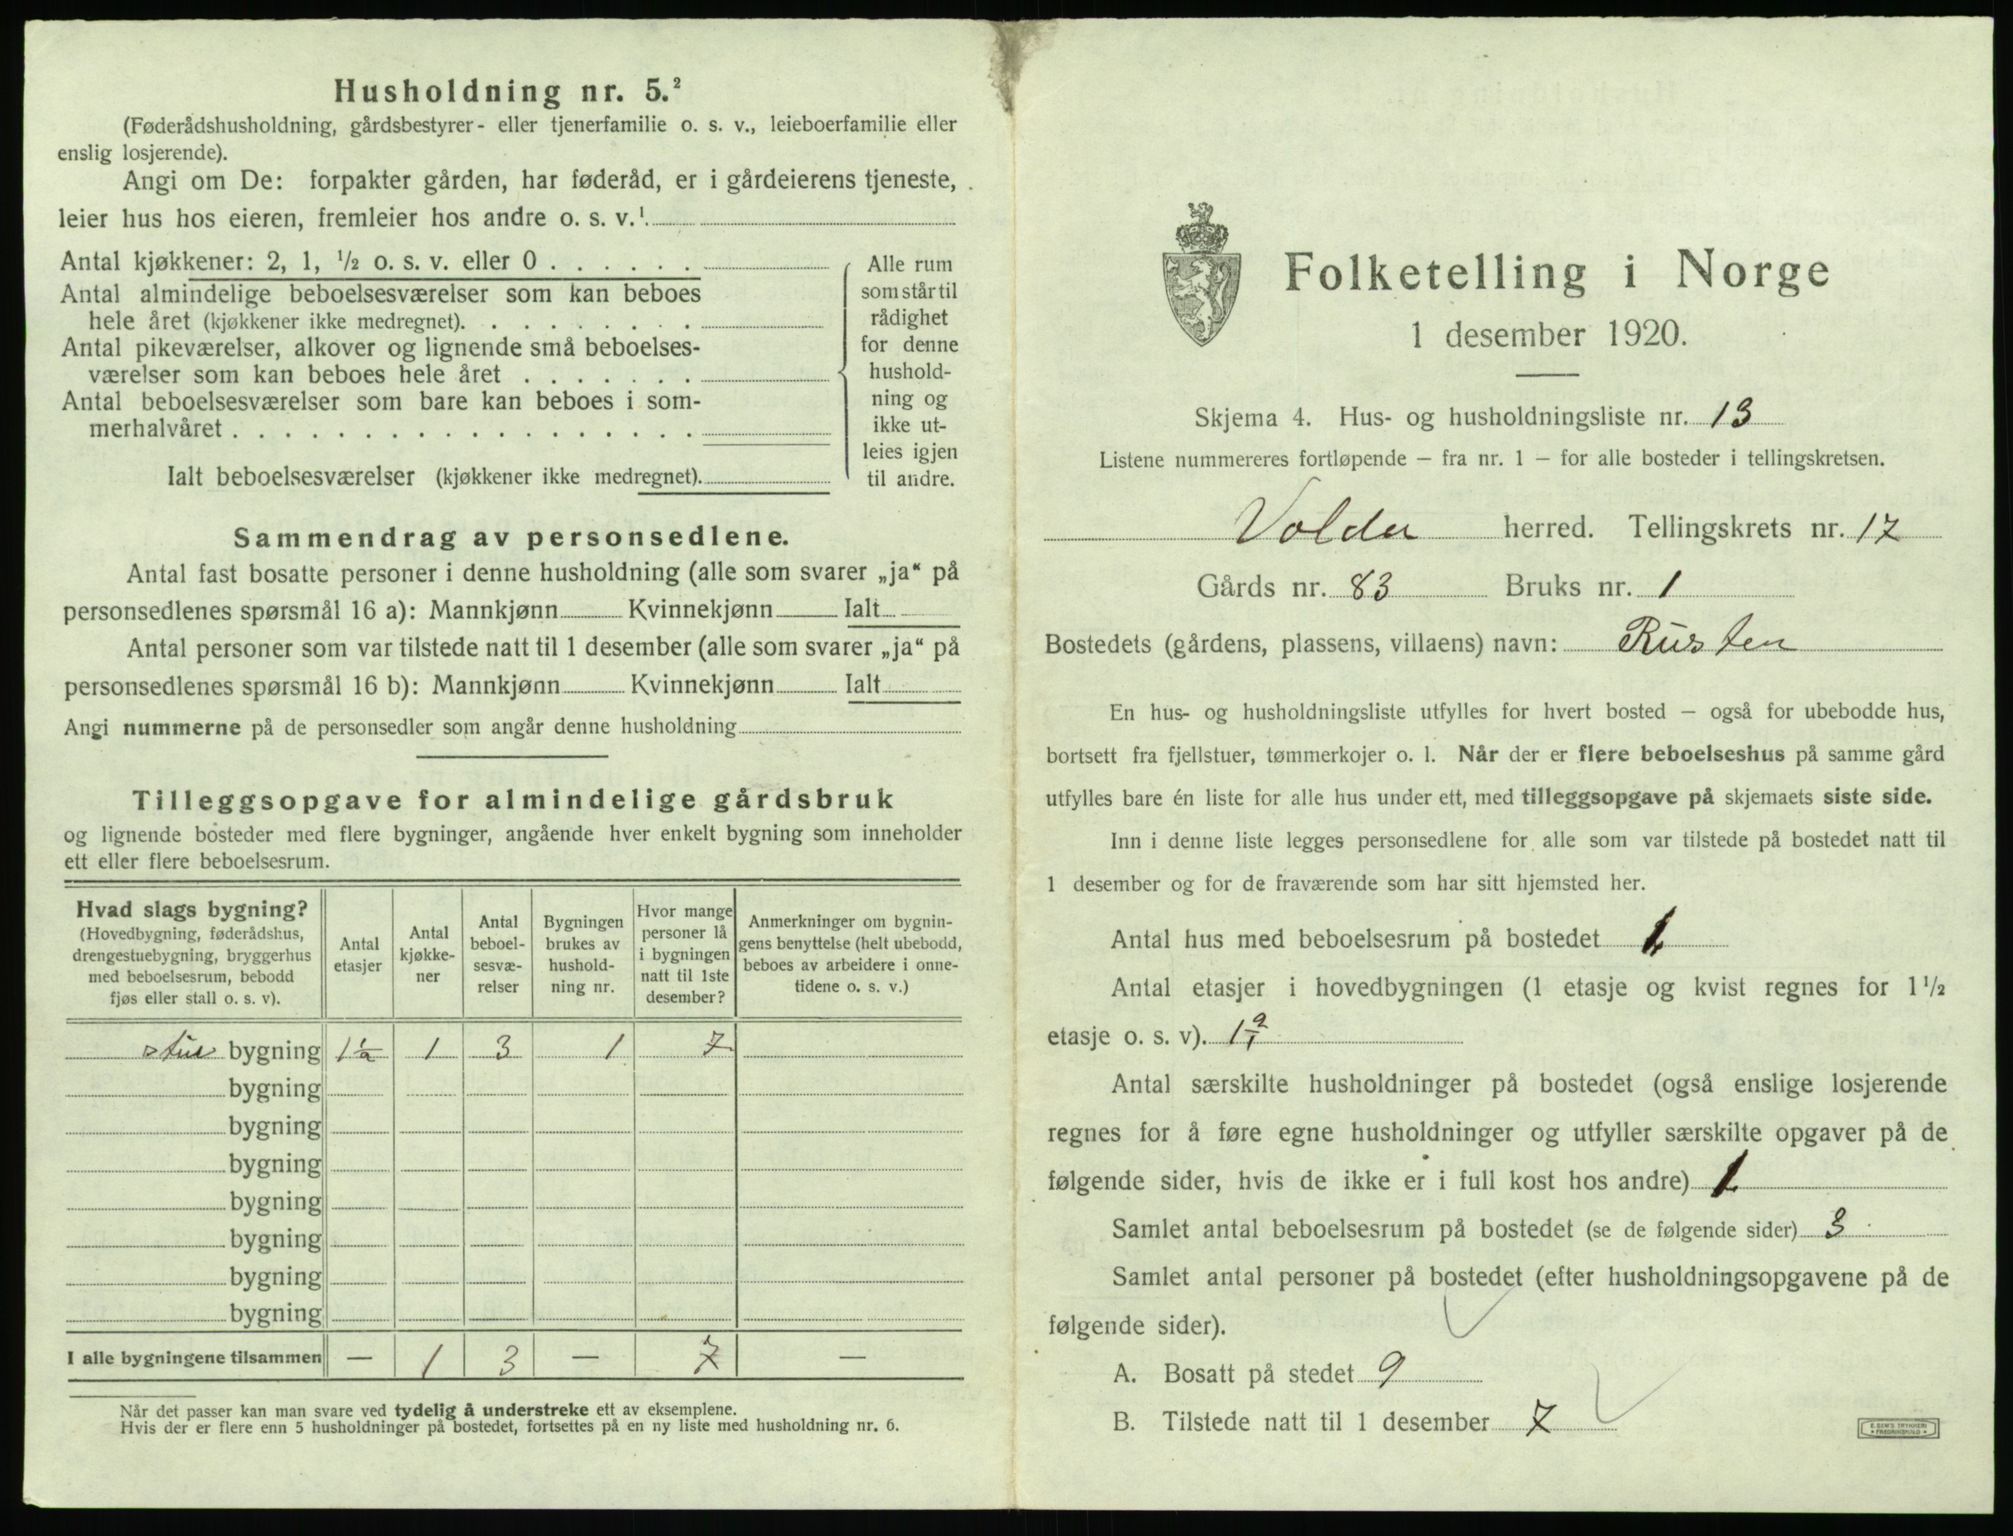 Husholdning nr. 5.²
(Føderådshusholdning, gårdsbestyrer- eller tjenerfamilie o. s. v., leieboerfamilie eller
enslig losjerende).
Angi om De: forpakter gården, har føderåd, er i gårdeierens tjeneste,
leier hus hos eieren, fremleier hos andre o. s. v.¹
Antal kjøkkener: 2, 1, ½ o. s. v. eller 0 . . . . . .
Antal almindelige beboelsesværelser som kan beboes
hele året (kjøkkener ikke medregnet). . . . . . . . .
Antal pikeværelser, alkover og lignende små beboelses-
værelser som kan beboes hele året . . . . . . .
Antal beboelsesværelser som bare kan beboes i som-
merhalvåret . . . . . . . . . . . . . . . . . .
Ialt beboelsesværelser (kjøkkener ikke medregnet).
Alle rum
som står til
rådighet
for denne
hushold-
ning og
ikke ut-
leies igjen
til andre.
Sammendrag av personsedlene.
Antal fast bosatte personer i denne husholdning (alle som svarer „ja“ på
personsedlenes spørsmål 16 a): Mannkjønn Kvinnekjønn Ialt
Antal personer som var tilstede natt til 1 desember (alle som svarer „ja“ på
personsedlenes spørsmål 16 b): Mannkjønn Kvinnekjønn Ialt
Angi nummerne på de personsedler som angår denne husholdning
Tilleggsopgave for almindelige gårdsbruk
og lignende bosteder med flere bygninger, angående hver enkelt bygning som inneholder
ett eller flere beboelsesrum.
Hvad slags bygning?
(Hovedbygning, føderådshus,
drengestuebygning, bryggerhus
med beboelsesrum, bebodd
fjøs eller stall o. s. v).
Antal
etasjer
Antal
kjøkke-
ner
Antal
beboel-
sesvæ-
relser
Bygningen
brukes av
hushold-
ning nr.
Hvor mange
personer lå
i bygningen
natt til 1ste
desember?
Anmerkninger om bygnin-
gens benyttelse (helt ubebodd,
beboes av arbeidere i onne-
tidene o. s. v.)
stue bygning 1½ 1 3 1 7
bygning
bygning
bygning
bygning
bygning
bygning
bygning
I alle bygningene tilsammen — 1 3 — 7 —
Når det passer kan man svare ved tydelig å understreke ett av eksemplene.
Hvis der er flere enn 5 husholdninger på bostedet, fortsettes på en ny liste med husholdning nr. 6.
Folketelling i Norge
1 desember 1920.
Skjema 4. Hus- og husholdningsliste nr. 13
Listene nummereres fortløpende — fra nr. 1 — for alle bosteder i tellingskretsen.
Volda herred. Tellingskrets nr. 17
Gårds nr. 83 Bruks nr. 1
Bostedets (gårdens, plassens, villaens) navn: Rusten
En hus- og husholdningsliste utfylles for hvert bosted — også for ubebodde hus,
bortsett fra fjellstuer, tømmerkojer o. l. Når der er flere beboelseshus på samme gård
utfylles bare én liste for alle hus under ett, med tilleggsopgave på skjemaets siste side.
Inn i denne liste legges personsedlene for alle som var tilstede på bostedet natt til
1 desember og for de fraværende som har sitt hjemsted her.
Antal hus med beboelsesrum på bostedet 1
Antal etasjer i hovedbygningen (1 etasje og kvist regnes for 1½
etasje o. s. v).
Antal særskilte husholdninger på bostedet (også enslige losjerende
regnes for å føre egne husholdninger og utfyller særskilte opgaver på de
følgende sider, hvis de ikke er i full kost hos andre) 1
Samlet antal beboelsesrum på bostedet (se de følgende sider) 3
Samlet antal personer på bostedet (efter husholdningsopgavene på de
følgende sider).
A. Bosatt på stedet 9
B. Tilstede natt til 1 desember 7
E. SEM'S TRYKKERI
FREDRIKSHALD